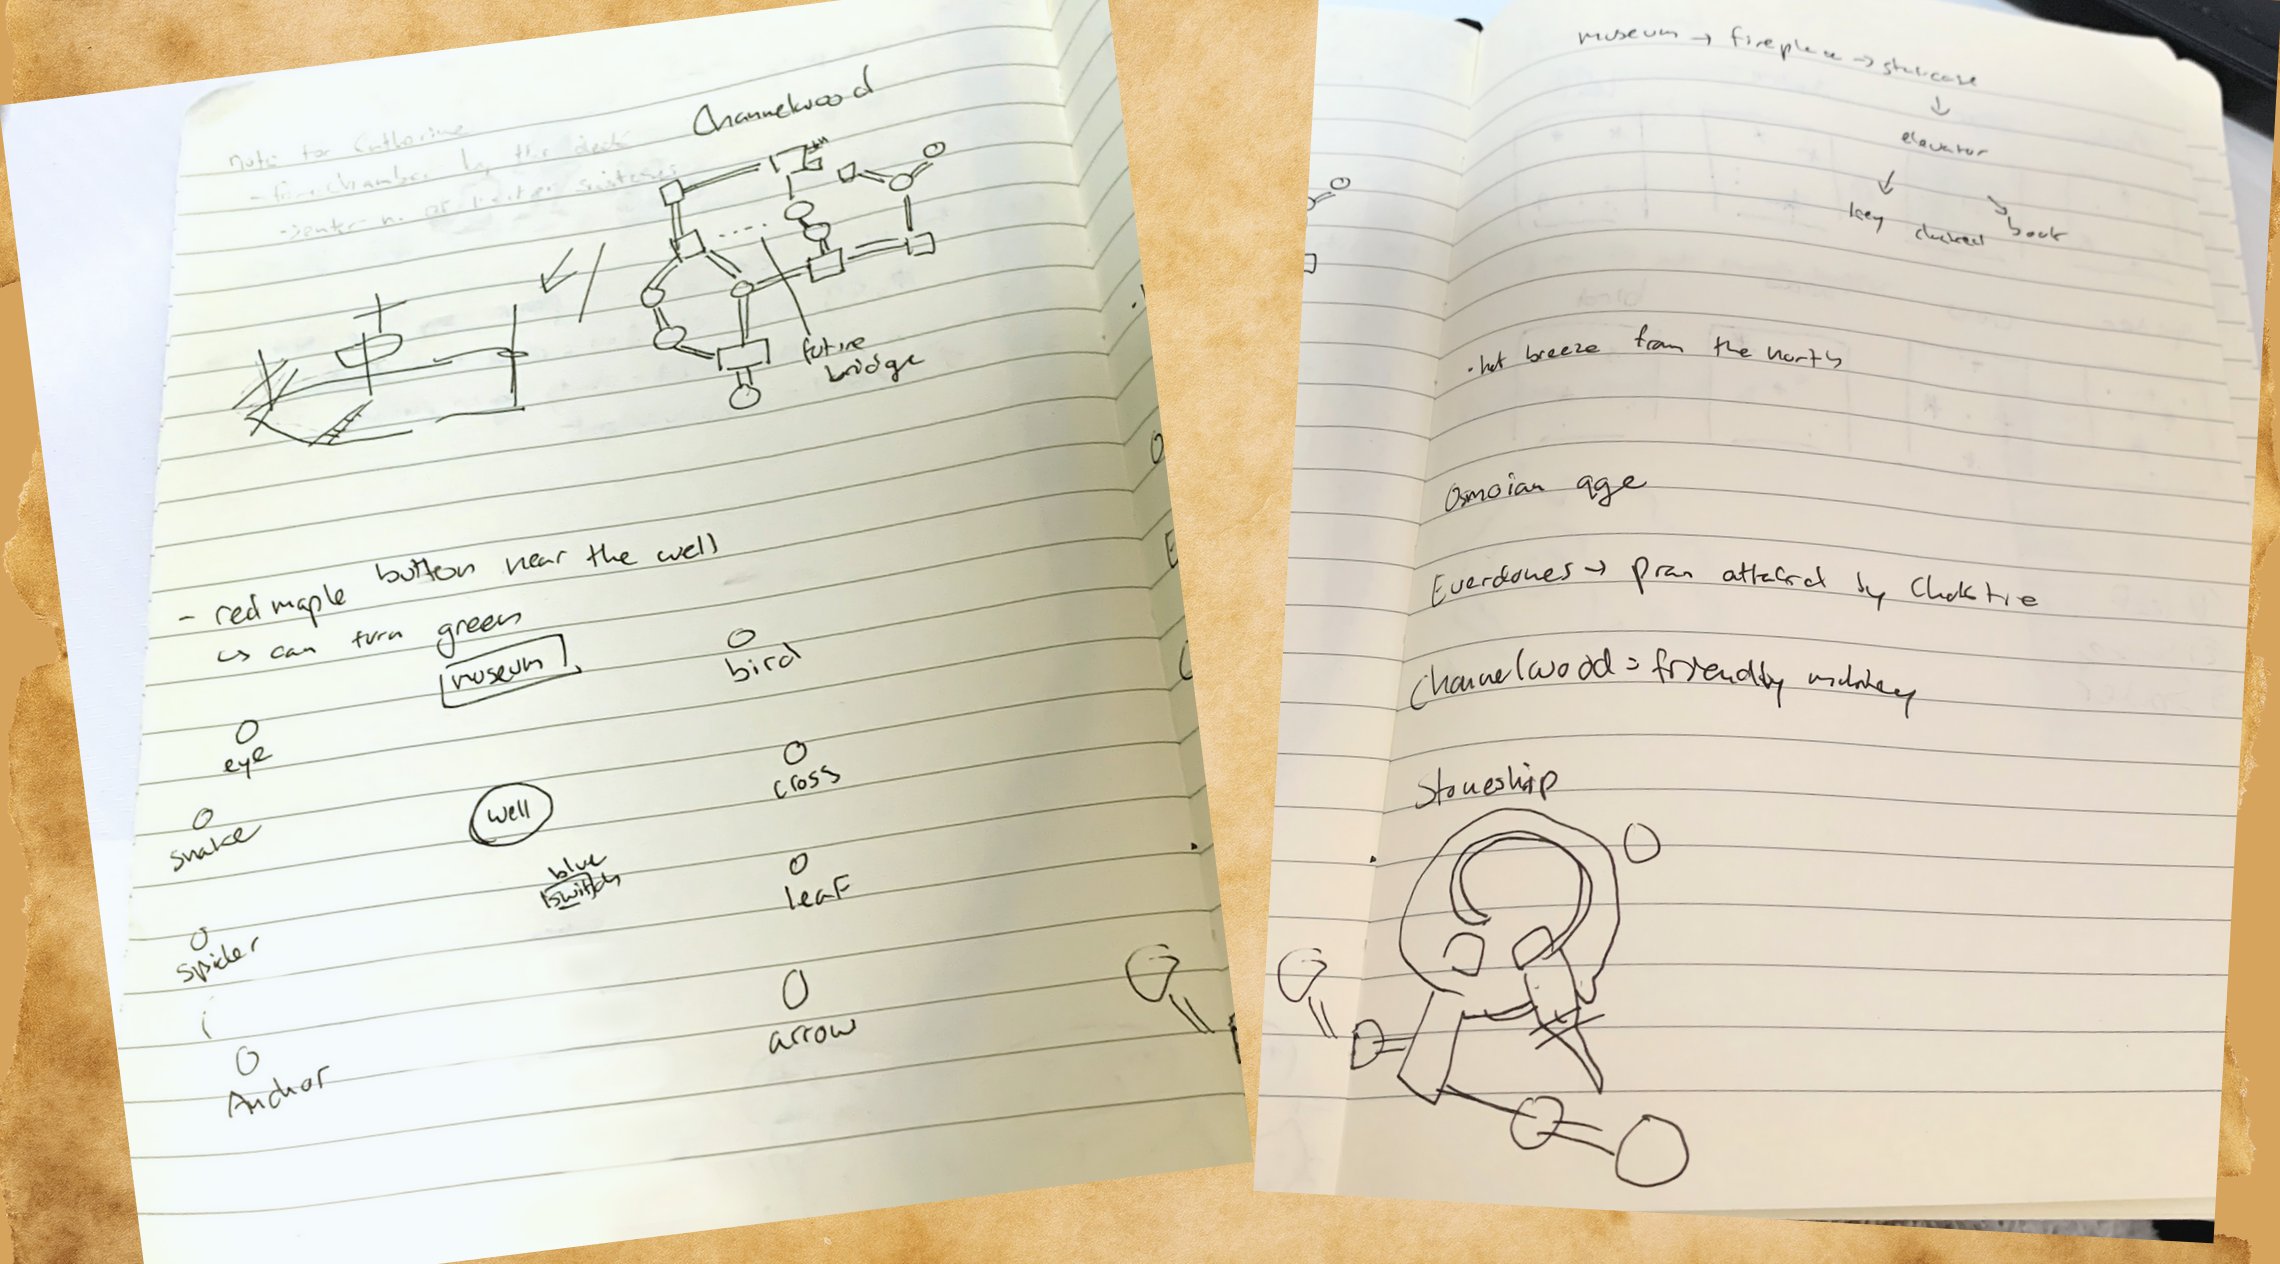 Channelwood
note for Catherine
by the dock
future
bridge
- red maple button near the well
↳ can turn green
museum
bird
eye
cross
snake
well
blue
switch
leaf
spider
arrow
Anchor
museum → fireplace → staircase
elevator
key
book
· hot breeze from the north
Osmoian age
Everdunes → pran attacked by
Channelwood = friendly
Stoneship